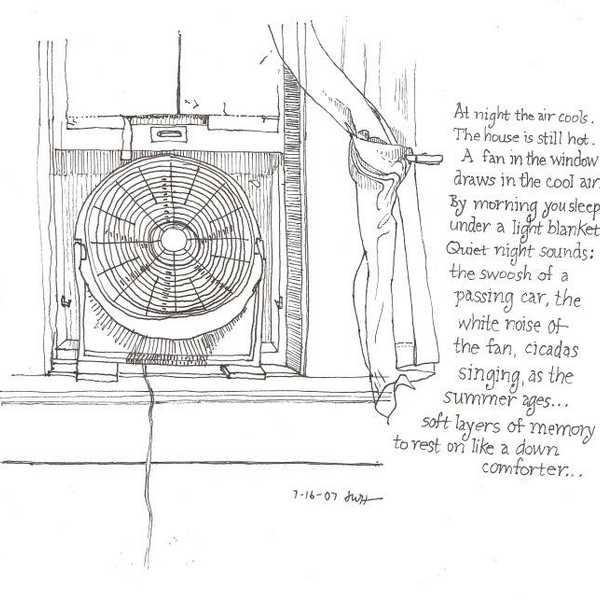 At night the air cools.
The house is still hot.
A fan in the window
draws in the cool air.
By morning you sleep
under a light blanket
Quiet night sounds:
the swoosh of a
passing car, the
white noise of
the fan, cicadas
singing, as the
summer ages...
soft layers of memory
to rest on like a down
comforter...
7-16-07 JWH